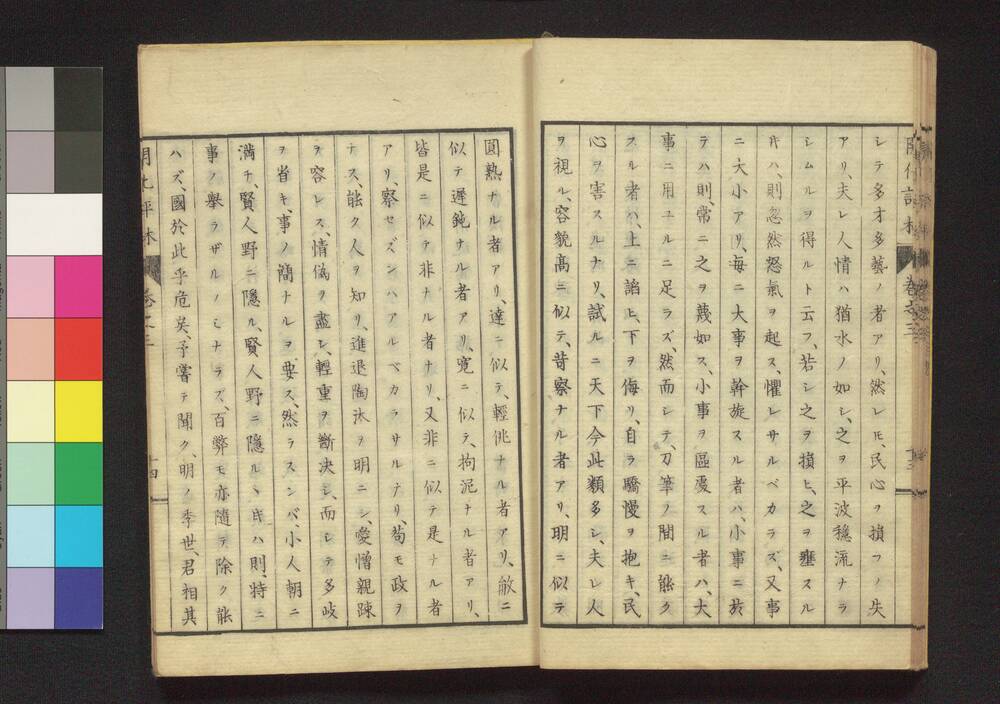 シテ多才多藝ノ者アリ、然レヒ、民心ヲ損フノ失
アリ、夫レ人情ハ猶水ノ如シ、之ヲ平波穏流ナラ
シムルヲ得ルト云フ、若シ之ヲ損ヒ、之ヲ壅スル
片ハ、則忽然怒氣ヲ起ス、懼レサルベカラズ、又事
ニ大小アリ、毎ニ大事ヲ幹旋スル者ハ、小事ニ於
テハ則、常ニ之ヲ蔑如ス、小事ヲ區處スル者ハ、大
事ニ用ユルニ足ラズ、然而シテ、刀筆ノ間ニ能ク
スル者ハ、上ニ諂ヒ、下ヲ侮リ、自ラ驕慢ヲ抱キ、民
心ヲ害スルナリ、試ルニ天下今此類多シ、夫レ人
ヲ視ル、容貌高ニ似テ、苛察ナル者アリ、明ニ似テ
圓熟ナル者アリ、達ニ似テ、輕佻ナル者アリ、敏ニ
似テ遲鈍ナル者アリ、寛ニ似テ、拘泥ナル者アリ、
皆是ニ似テ非ナル者ナリ、又非ニ似テ是ナル者
アリ、察セズンハアルベカラサルナリ、苟モ政ヲ
ナス、能ク人ヲ知リ、進退陶汰ヲ明ニシ、愛憎親疎
ヲ容レス、情僞ヲ盡シ、輕重ヲ斷決シ、而シテ多歧
ヲ省キ、事ノ簡ナルヲ要ス、然ラスンバ、小人朝ニ
満チ、賢人野ニ隱ル、賢人野ニ隱ルヽ片ハ則、特ニ
事ノ擧ラザルノミナラズ、百弊モ亦隨テ除ク能
ハズ、國於此乎危矣、予嘗テ聞ク、明ノ季世、君相其